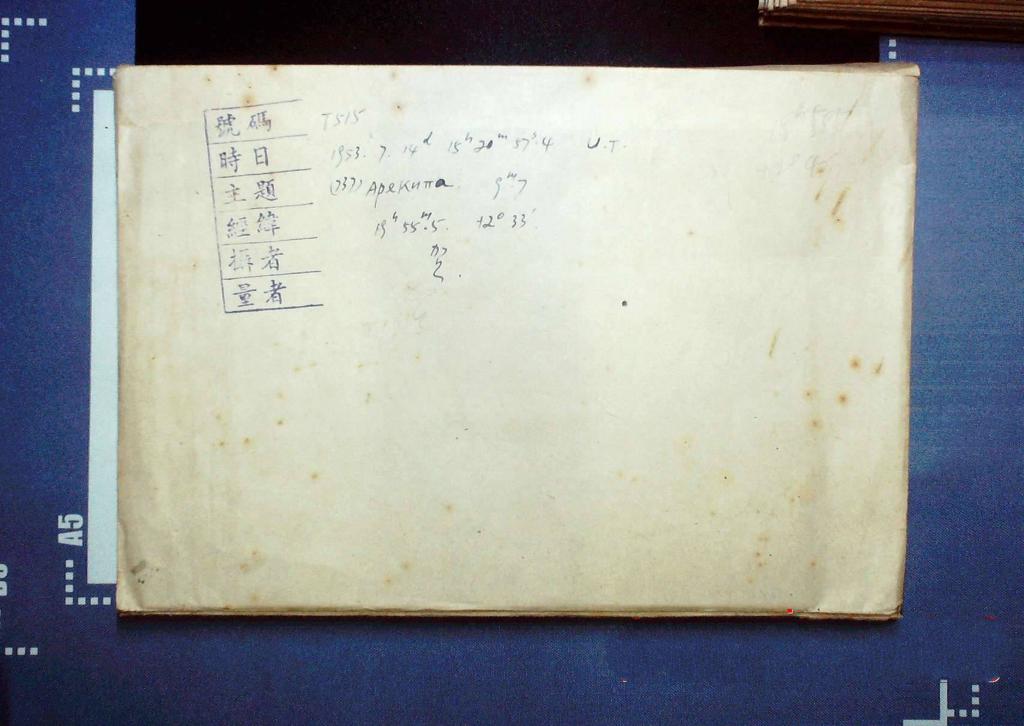 號碼 T515
時日 1953. 7. 14ᵈ 15ʰ 20ᵐ 57ˢ.4 U.T.
主題 (737) Арекипа. 9ᵐ.7
經緯 19ʰ 55ᵐ.5. +2° 33′.
攝者
量者
A5